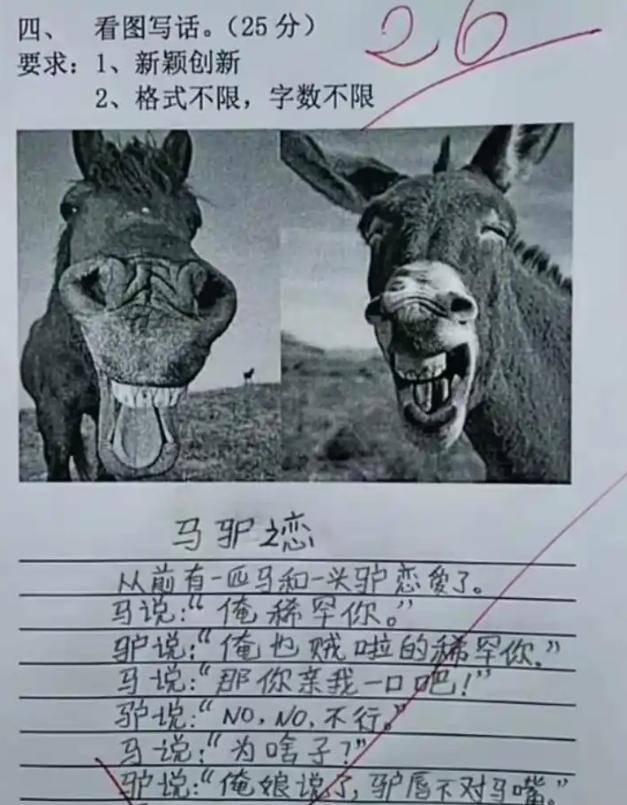 四、 看图写话。（25分） 26
要求：1、新颖创新
2、格式不限，字数不限
马驴之恋
从前有一匹马和一头驴恋爱了。
马说：“俺稀罕你。”
驴说：“俺也贼啦的稀罕你。”
马说：“那你亲我一口吧！”
驴说：“NO，NO，不行。”
马说：“为啥子？”
驴说：“俺娘说了，驴唇不对马嘴”